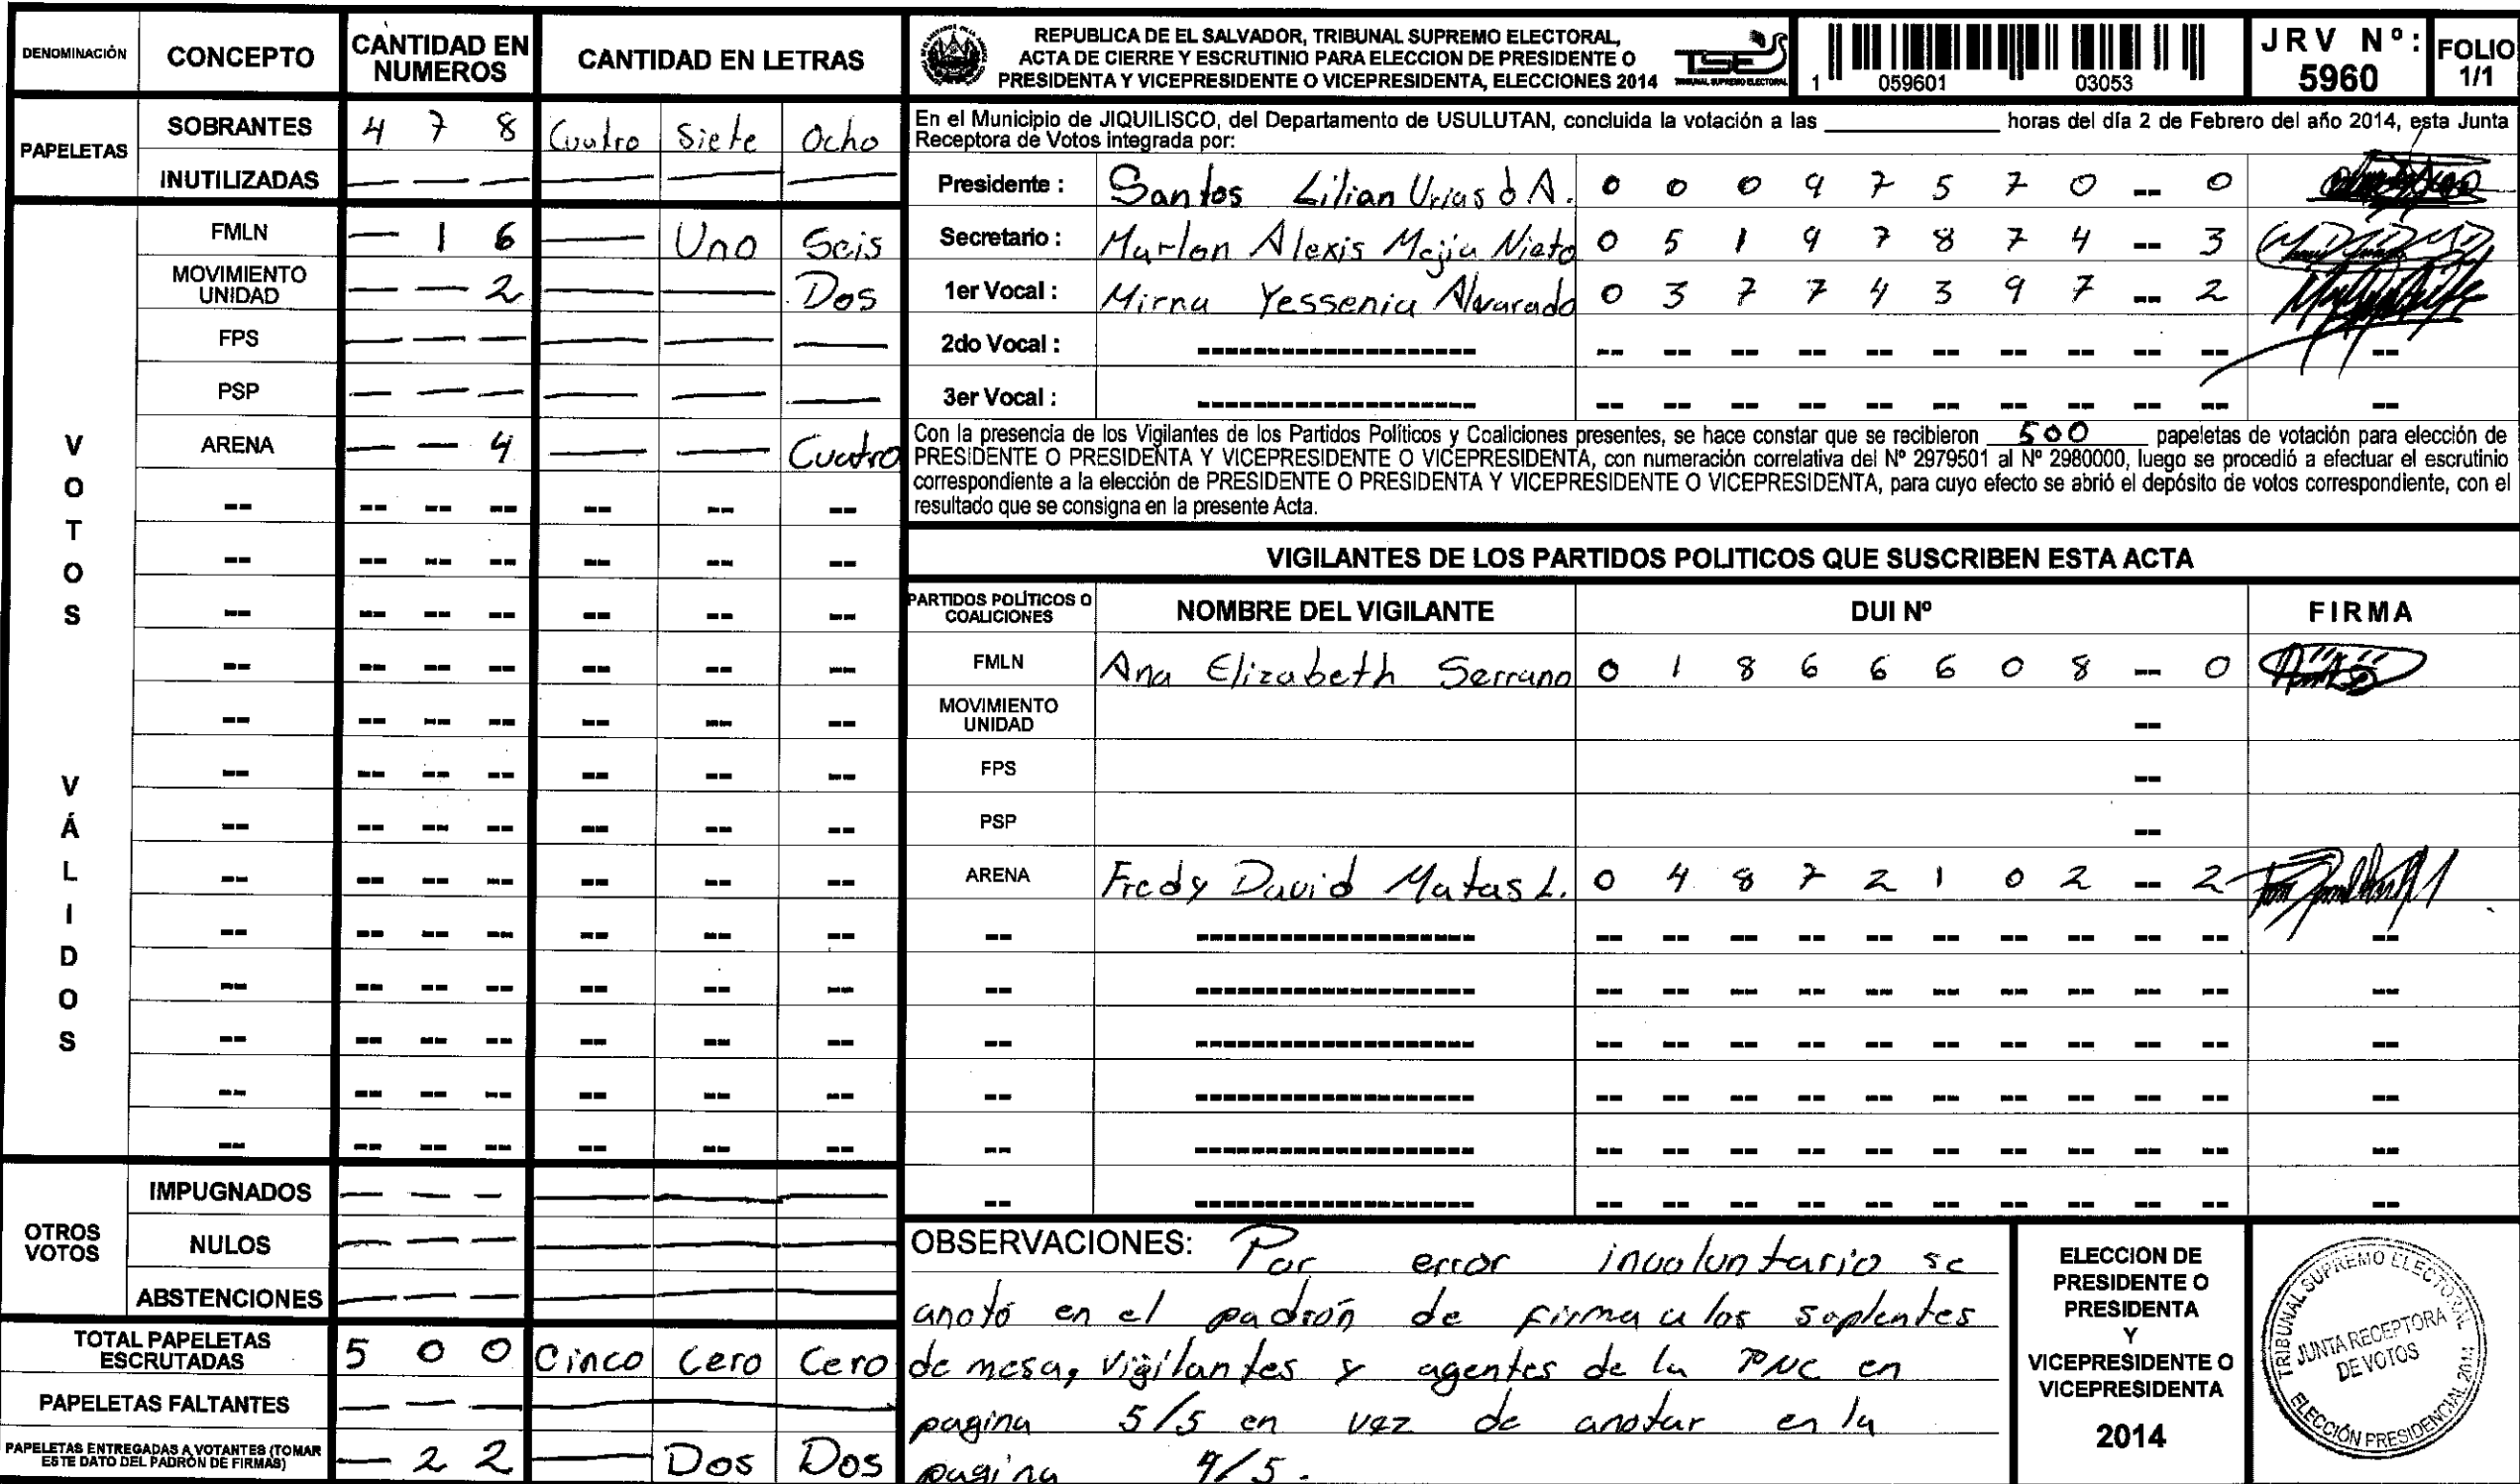 DENOMINACIÓN CONCEPTO CANTIDAD EN NUMEROS CANTIDAD EN LETRAS
PAPELETAS
SOBRANTES 4 7 8 Cuatro Siete Ocho
INUTILIZADAS — — — — — —
VOTOS VÁLIDOS
FMLN — 1 6 — Uno Seis
MOVIMIENTO UNIDAD — — 2 — — Dos
FPS — — — — — —
PSP — — — — — —
ARENA — — 4 — — Cuatro
-- -- -- -- -- -- --
-- -- -- -- -- -- --
-- -- -- -- -- -- --
-- -- -- -- -- -- --
-- -- -- -- -- -- --
-- -- -- -- -- -- --
-- -- -- -- -- -- --
-- -- -- -- -- -- --
-- -- -- -- -- -- --
-- -- -- -- -- -- --
-- -- -- -- -- -- --
-- -- -- -- -- -- --
-- -- -- -- -- -- --
OTROS VOTOS
IMPUGNADOS — — — — — —
NULOS — — — — — —
ABSTENCIONES — — — — — —
TOTAL PAPELETAS ESCRUTADAS 5 0 0 Cinco Cero Cero
PAPELETAS FALTANTES — — — — — —
PAPELETAS ENTREGADAS A VOTANTES (TOMAR ESTE DATO DEL PADRÓN DE FIRMAS) — 2 2 — Dos Dos
REPUBLICA DE EL SALVADOR, TRIBUNAL SUPREMO ELECTORAL,
ACTA DE CIERRE Y ESCRUTINIO PARA ELECCION DE PRESIDENTE O
PRESIDENTA Y VICEPRESIDENTE O VICEPRESIDENTA, ELECCIONES 2014
TSE
TRIBUNAL SUPREMO ELECTORAL
1 059601 03053
JRV Nº: 5960
FOLIO 1/1
En el Municipio de JIQUILISCO, del Departamento de USULUTAN, concluida la votación a las ________ horas del día 2 de Febrero del año 2014, esta Junta
Receptora de Votos integrada por:
Presidente : Santos Lilian Urias d A. 0 0 0 9 7 5 7 0 -- 0
Secretario : Marlon Alexis Mejia Nieto 0 5 1 9 7 8 7 4 -- 3
1er Vocal : Mirna Yessenia Alvarado 0 3 7 7 4 3 9 7 -- 2
2do Vocal : ------------------ -- -- -- -- -- -- -- -- -- -- --
3er Vocal : ------------------ -- -- -- -- -- -- -- -- -- -- --
Con la presencia de los Vigilantes de los Partidos Políticos y Coaliciones presentes, se hace constar que se recibieron 500 papeletas de votación para elección de
PRESIDENTE O PRESIDENTA Y VICEPRESIDENTE O VICEPRESIDENTA, con numeración correlativa del Nº 2979501 al Nº 2980000, luego se procedió a efectuar el escrutinio
correspondiente a la elección de PRESIDENTE O PRESIDENTA Y VICEPRESIDENTE O VICEPRESIDENTA, para cuyo efecto se abrió el depósito de votos correspondiente, con el
resultado que se consigna en la presente Acta.
VIGILANTES DE LOS PARTIDOS POLITICOS QUE SUSCRIBEN ESTA ACTA
PARTIDOS POLÍTICOS O COALICIONES NOMBRE DEL VIGILANTE DUI Nº FIRMA
FMLN Ana Elizabeth Serrano 0 1 8 6 6 6 0 8 -- 0
MOVIMIENTO UNIDAD --
FPS --
PSP --
ARENA Fredy David Matas L. 0 4 8 7 2 1 0 2 -- 2
-- ------------------ -- -- -- -- -- -- -- -- -- -- --
-- ------------------ -- -- -- -- -- -- -- -- -- -- --
-- ------------------ -- -- -- -- -- -- -- -- -- -- --
-- ------------------ -- -- -- -- -- -- -- -- -- -- --
-- ------------------ -- -- -- -- -- -- -- -- -- -- --
-- ------------------ -- -- -- -- -- -- -- -- -- -- --
OBSERVACIONES: Por error involuntario se
anotó en el padrón de firma a los suplentes
de mesa, vigilantes y agentes de la PNC en
pagina 5/5 en vez de anotar en la
pagina 4/5.
ELECCION DE
PRESIDENTE O
PRESIDENTA
Y
VICEPRESIDENTE O
VICEPRESIDENTA
2014
TRIBUNAL SUPREMO ELECTORAL
JUNTA RECEPTORA
DE VOTOS
ELECCIÓN PRESIDENCIAL 2014